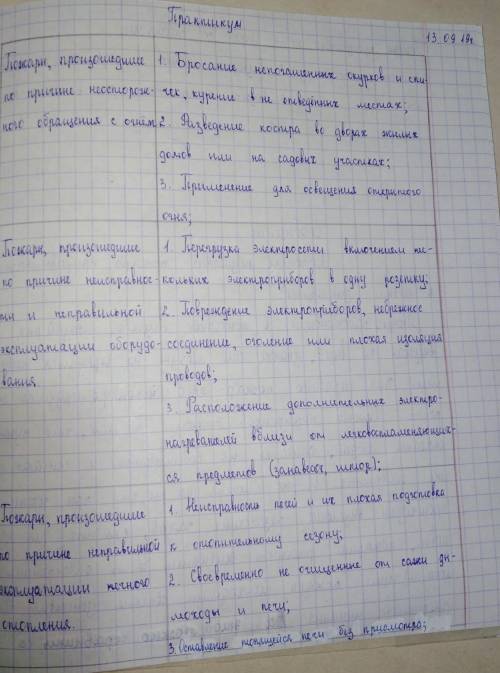 Практикум
13.09.19г
Пожары, произошедшие
по причине неосторож-
ного обращения с огнем
1. Бросание непогашенных окурков и спи-
чек, курение в не отведённых местах;
2. Разведение костра во дворах жилых
домов или на садовых участках;
3. Применение для освещения открытого
огня;
Пожары, произошедшие
по причине неисправнос-
ти и неправильной
эксплуатации оборудо-
вания.
1. Перегрузка электросети включением нес-
кольких электроприборов в одну розетку;
2. Повреждение электроприборов, небрежное
соединение, оголение или плохая изоляция
проводов;
3. Расположение дополнительных электро-
нагревателей вблизи от легковоспламеняющих-
ся предметов (занавесок, штор);
Пожары, произошедшие
по причине неправильной
эксплуатации печного
отопления.
1. Неисправность печей и их плохая подготовка
к отопительному сезону;
2. Своевременно не очищенные от сажи ды-
моходы и печи;
3. Оставление топящейся печи без присмотра;